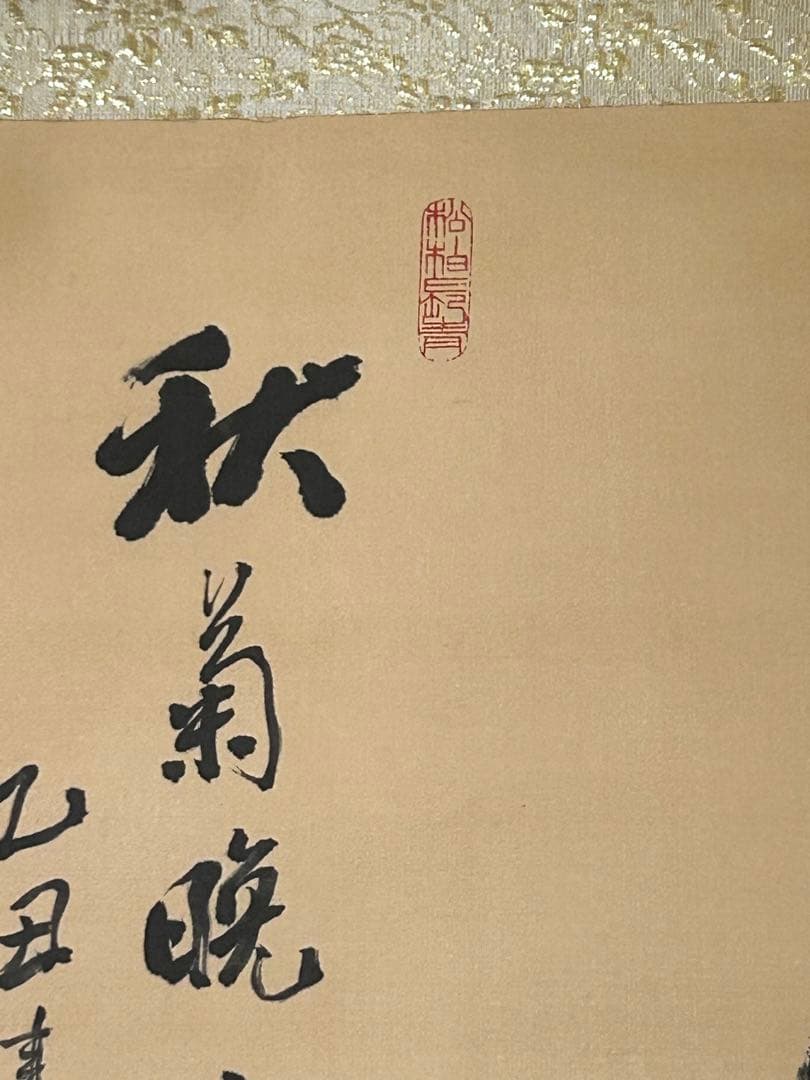 松柏長青
秋菊晚
乙丑春